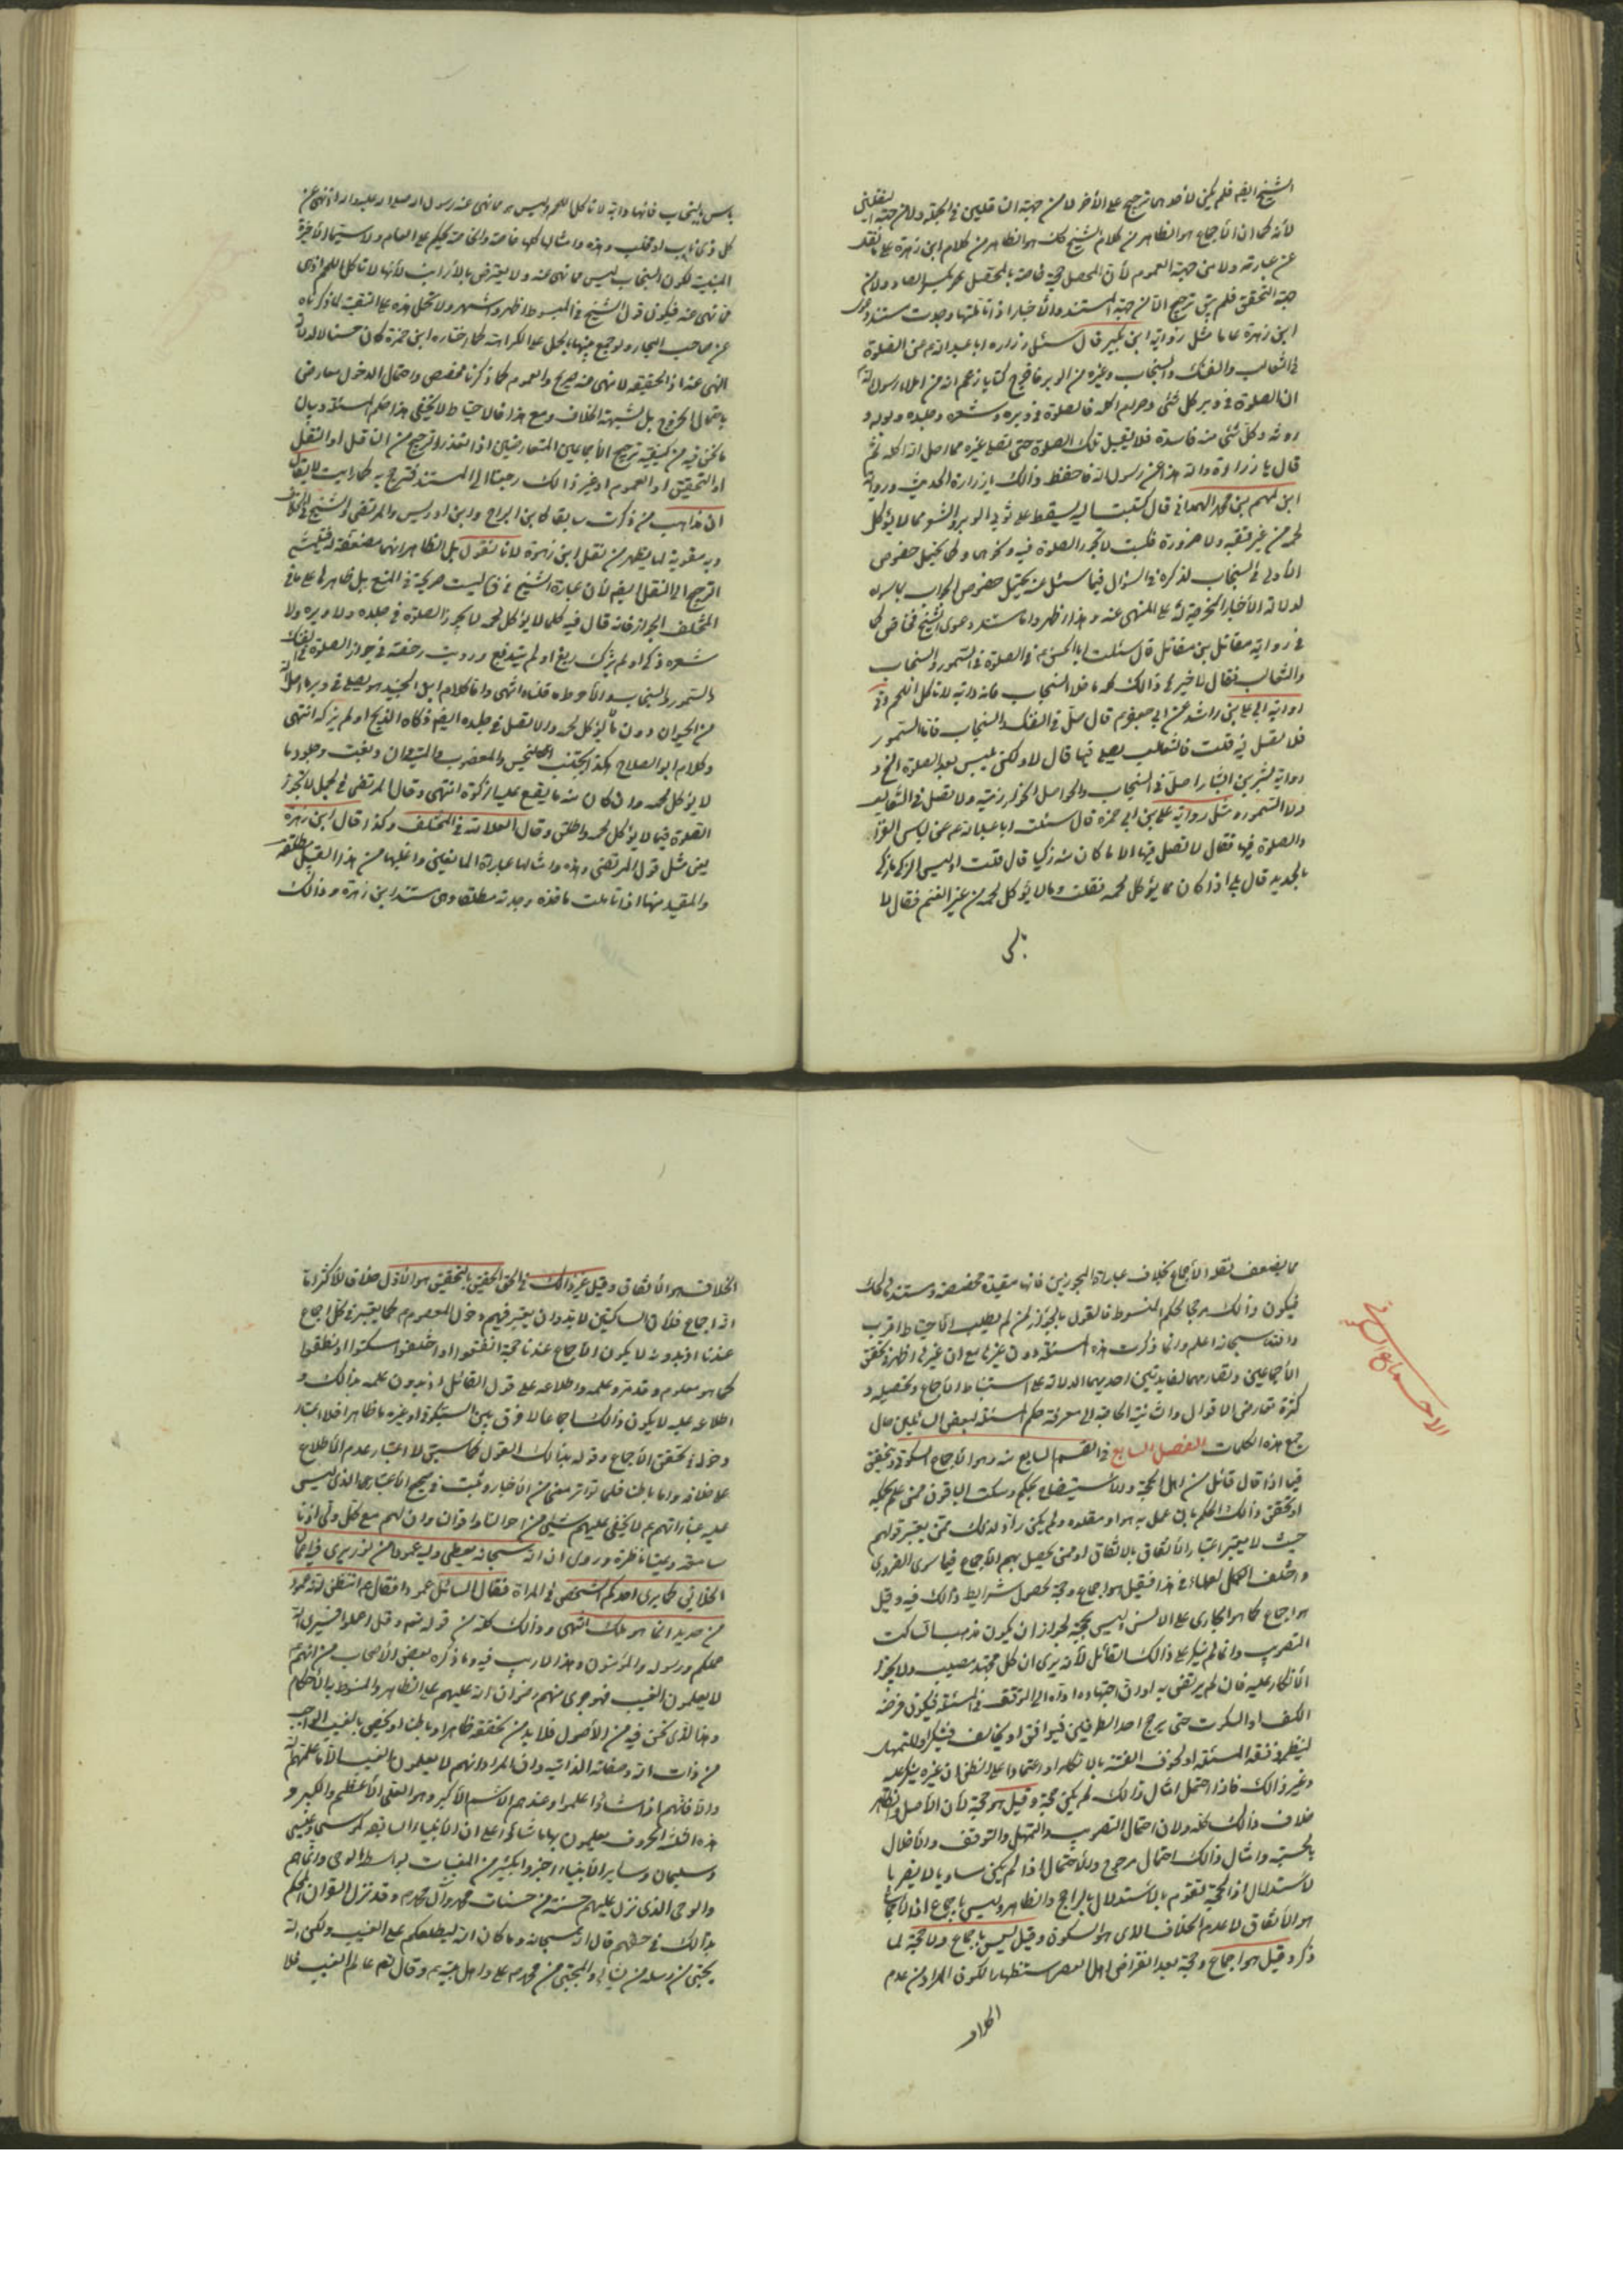 الشيخ ايضا فلم يكن لأحدهما ترجيح على الأخر لا من جهة الناقلين في الجملة ولا من جهة النقلين
لأنه كما ان الأجماع هو الظاهر من كلام الشيخ كذلك هو الظاهر من كلام ابن زهرة على ما نقل
عن عبارته ولا من جهة العموم لأن المحصل حجة خاصة بالمحصل
جهة التحقق فلم يبق ترجيح الا من جهة المستند والأخبار اذا تأملتها وجدت مستند دعوى
ابن زهرة عاما مثل رواية ابن بكير قال سئل زرارة ابا عبد الله ع عن الصلوة
في الثعالب والفنك والسنجاب وغيره من الوبر فاخرج كتابا زعم انه من املاء رسول الله
ان الصلوة في وبر كل شئ حرام اكله فالصلوة في وبره وشعره وجلده وبوله و
روثه وكل شئ منه فاسدة فلا يقبل تلك الصلوة حتى تصلى في غيره مما احل الله اكله ثم
قال يا زرارة هذا عن رسول الله فاحفظ ذالك يا زرارة الحديث ورواية
ابراهيم بن محمد الهمداني قال كتبت اليه يسقط على ثوبي الوبر والشعر مما لا يؤكل
لحمه من غير تقية ولا ضرورة فكتبت لا تجوز الصلوة فيه ونحوهما وكما يحتمل خصوص
الأولى في السنجاب لذكره في السؤال فيما سئل عنه يحتمل خصوص الجواب بما سواه
لدلالة الأخبار المخرجة له على المنهى عنه وهذا اظهر واما مستند دعوى الشيخ فخاص كما
في رواية مقاتل بن مقاتل قال سئلت ابا الحسن ع في الصلوة في السمور والسنجاب
والثعالب فقال لا خير في ذالك كله ما خلا السنجاب فانه دابة لا تأكل اللحم وفي
رواية ابي علي بن راشد عن ابي جعفر ع قال صل في الفنك والسنجاب فاما السمور
فلا تصل فيه قلت فالثعالب يصلى فيها قال لا ولكن تلبس بعد الصلوة الخ و
رواية بشر بن بشار صل في السنجاب والحواصل الخوارزمية ولا تصل في الثعالب
ولا السمور ومثل رواية علي بن ابي حمزة قال سئلت ابا عبد الله ع عن لباس الفراء
والصلوة فيها فقال لا تصل فيها الا ما كان منه ذكيا قال قلت اوليس الذكي ما ذكي
بالحديد قال بلى اذا كان مما يؤكل لحمه فقلت وما لا يؤكل لحمه من غير الغنم فقال لا
باس
باس بالسنجاب فانها دابة لا تأكل اللحم وليس هو مما نهى عنه رسول الله صلى الله عليه واله اذ نهى عن
كل ذي ناب او مخلب وهذه وامثالها كلها خاصة والخاصة يحكم على العام ولا سيما الأخيرة
المبينة لكون السنجاب ليس مما نهى عنه ولا يعترض بالأرانب لأنها لا تأكل اللحم اذ هي
مما نهى عنه فيكون قول الشيخ في المبسوط اظهر واشهر ولا تحمل هذه على التقية لما ذكرناه
عن صاحب البحار ولو جمع بينها بالحمل على الكراهة كما اختاره ابن حمزة كان حسنا لا لدلالة
النهى عنه اذ الحقيقة لا نهى عنه صريح والعموم كما ذكرنا مخصص واحتمال الدخول معارض
باحتمال الخروج بل لشبهة الخلاف ومع هذا فالاحتياط لا يخفى هذا حكم المسئلة وبيان
ما نحن فيه من كيفية ترجيح الأجماعين المتعارضين اذا تعذر الترجيح من الناقل او النقل
او التحقيق او العموم او غير ذالك رجعنا الى المستند فنرجح به كما رايت لا يقال
ان مذاهب من ذكرت سابقا كابن البراج وابن ادريس والمرتضى والشيخ في الخلاف
وبه مقوية لما يظهر من نقل ابن زهرة لأنا نقول بل الظاهر انها مضعفة له
الترجيح الى النقل ايضا لأن عبارة الشيخ في ف ليست صريحة في المنع بل ظاهرها على ما في
المختلف الجواز فانه قال فيه كلما لا يؤكل لحمه لا يجوز الصلوة في جلده ولا وبره ولا
شعره ذكي او لم يذك دبغ او لم يدبغ ورويت رخصة في جواز الصلوة في الفنك
والسمور والسنجاب والأحوط ما قلناه انتهى واما كلام ابن الجنيد هو يصلى في وبر ما احل الله
من الحيوان دون ما لا يؤكل لحمه ولا تصل في جلده ايضا ذكاه الذبح او لم يزكه انتهى
وكلام ابو الصلاح هكذا تجتنب النجس والمغصوب والميتة وان دبغت وجلود ما
لا يؤكل لحمه وان كان منه ما يقع عليه الزكوة انتهى وقال المرتضى في الجمل لا تجوز
الصلوة فيما لا يؤكل لحمه واطلق وقال العلامة في المختلف وكذا قال ابن زهرة
يعنى مثل قول المرتضى وهذه وامثالها عبارة المانعين واغلبها من هذا القبيل مطلقة
والمقيد منها اذا تأملت ماخذه وجدته مطلقا وهي مستند ابن زهرة وذالك
مما يضعف نقله الأجماع بخلاف عبارة المجوزين فانها مقيدة مخصصة ومستندها كذلك
فيكون ذالك مرجحا لحكم المبسوط فالقول بالجواز لمن لم يطلب الأحتياط اقرب
والله سبحانه اعلم وانما ذكرت هذه المسئلة دون غيرها مع ان غيرها اظهر في تحقق
الأجماعين وتعارضهما لفايدتين احديهما الدلالة على استنباط الأجماع وتحصيله و
كثرة تعارض الاقوال والثانية الحاجة الى معرفة حكم المسئلة لبعض السائلين حال
جمع هذه الكلمات الفصل السابع في القسم السابع منه وهو الأجماع السكوتي وتحقق
فيما اذا قال قائل من اهل الحجة والأستيضاح بحكم وسكت الباقون ممن علم بحكمه
او تحقق ذالك الحكم بان عمل به هو او مقلدوه ولم يكن راد لذلك ممن يعتبر قولهم
حيث لا يعتبر اعتبار الأتفاق بالاتفاق او ممن يحصل بهم الأجماع فيما سوى الضروري
واختلف العلماء في هذا فقيل هو اجماع وحجة لحصول شرايط ذالك فيه وقيل
هو اجماع كما هو الجاري على الالسن وليس بحجة لجواز ان يكون مذهب الساكت
التصويب وانما لم ينكر على ذالك القائل لأنه يرى ان كل مجتهد مصيب ولا يجوز
الأنكار عليه فان لم يرتض به او ان اجتهاده اداه الى التوقف في المسئلة فيكون فرضه
الكف او السكوت حتى يرجح احد الطرفين فيوافق او يخالف فينكر او للتمهل
لينظر في فقه المسئلة او لخوف الفتنة بالانكار او اعتمادا على الظن ان غيره ينكر عليه
وغير ذالك فاذا احتمل امثال ذالك لم يكن حجة وقيل هو حجة لأن الأصل والظاهر
خلاف ذالك كله ولان احتمال التصويب والتمهل والتوقف والأخلال
بالحسبة وامثال ذالك احتمال مرجوح والأحتمال اذا لم يكن مساويا لا يضر با
لأستدلال اذ الحجة تقوم بالأستدلال بالراجح والظاهر وليس باجماع اذ الأجماع
هو الأتفاق لا عدم الخلاف الذي هو السكوت وقيل ليس باجماع ولا حجة لما
ذكر وقيل هو اجماع وحجة بعد انقراض اهل العصر استظهارا لكون المراد من عدم
الاجماع السكوتي
الخلاف هو الأتفاق وقيل غير ذالك والحق الحقيق بالتحقيق هو الأول
انه اجماع فلأن الساكتين لا بد وان يعتبر فيهم دخول المعصوم ع كما يعتبر في كل اجماع
عندنا اذ بدونه لا يكون الأجماع عندنا حجة اتفقوا او اختلفوا سكتوا او نطقوا
كما هو معلوم وقدرته وعلمه واطلاعه على قول القائل اذ بدون علمه بذالك و
اطلاعه عليه لا يكون ذالك اجماعا لا فرق بين السكوتي او غيره
دخوله في تحقق الأجماع وقوله بذالك القول كما سبق لا اعتبار عدم الأطلاع
على خلافه واما باطنا فلما تواتر معنى من الأخبار وثبت في صحيح الأعتبار الذي ليس
عليه غبار انهم ع لا يخفى عليهم شئ من احوالنا واقوالنا وان لهم مع كل ولي اذنا
سامعة وعينا ناظرة وروى ان الله سبحانه يعطى وليه عمودا من نور يرى فيه اعمال
الخلائق كما يرى احدكم الشخص في المراة فقال السائل عمود فقال ع اتظن انه عمود
من حديد انما هو ملك انتهى وذالك كله من قوله تعالى وقل اعملوا فسيرى الله
عملكم ورسوله والمؤمنون وهذا لا ريب فيه وما ذكره بعض الأصحاب من انهم ع
لا يعلمون الغيب فهو جرى منهم رضوان الله عليهم على الظاهر والمنوط به الأحكام
وهذا الذي نحن فيه من الأصول فلا بد من تحققه ظاهرا وباطنا او يخص بالغيب الواجب
من ذات الله وصفاته الذاتية وان المراد انهم لا يعلمون الغيب الا ما علمهم الله
والا فانهم اذا شاؤا علموا وعندهم الأسم الأكبر وهو العقل الأعظم والكبير و
هذه الثلثة الحروف يعلمون بها ما شاؤا على ان الأنبياء السابقة كموسى وعيسى
وسليمان وساير الأنبياء اخبروا بكثير من المغيبات بواسطة الوحى والالهام
والوحى الذي نزل عليهم حسنة من حسنات محمد وال محمد ع وقد نزل القران المحكم
بذالك في حقهم قال الله سبحانه وما كان الله ليطلعكم على الغيب ولكن الله
يجتبى من رسله من يشاء والمجتبى من محمد ع علي واهل بيته ع وقال تعالى عالم الغيب فلا